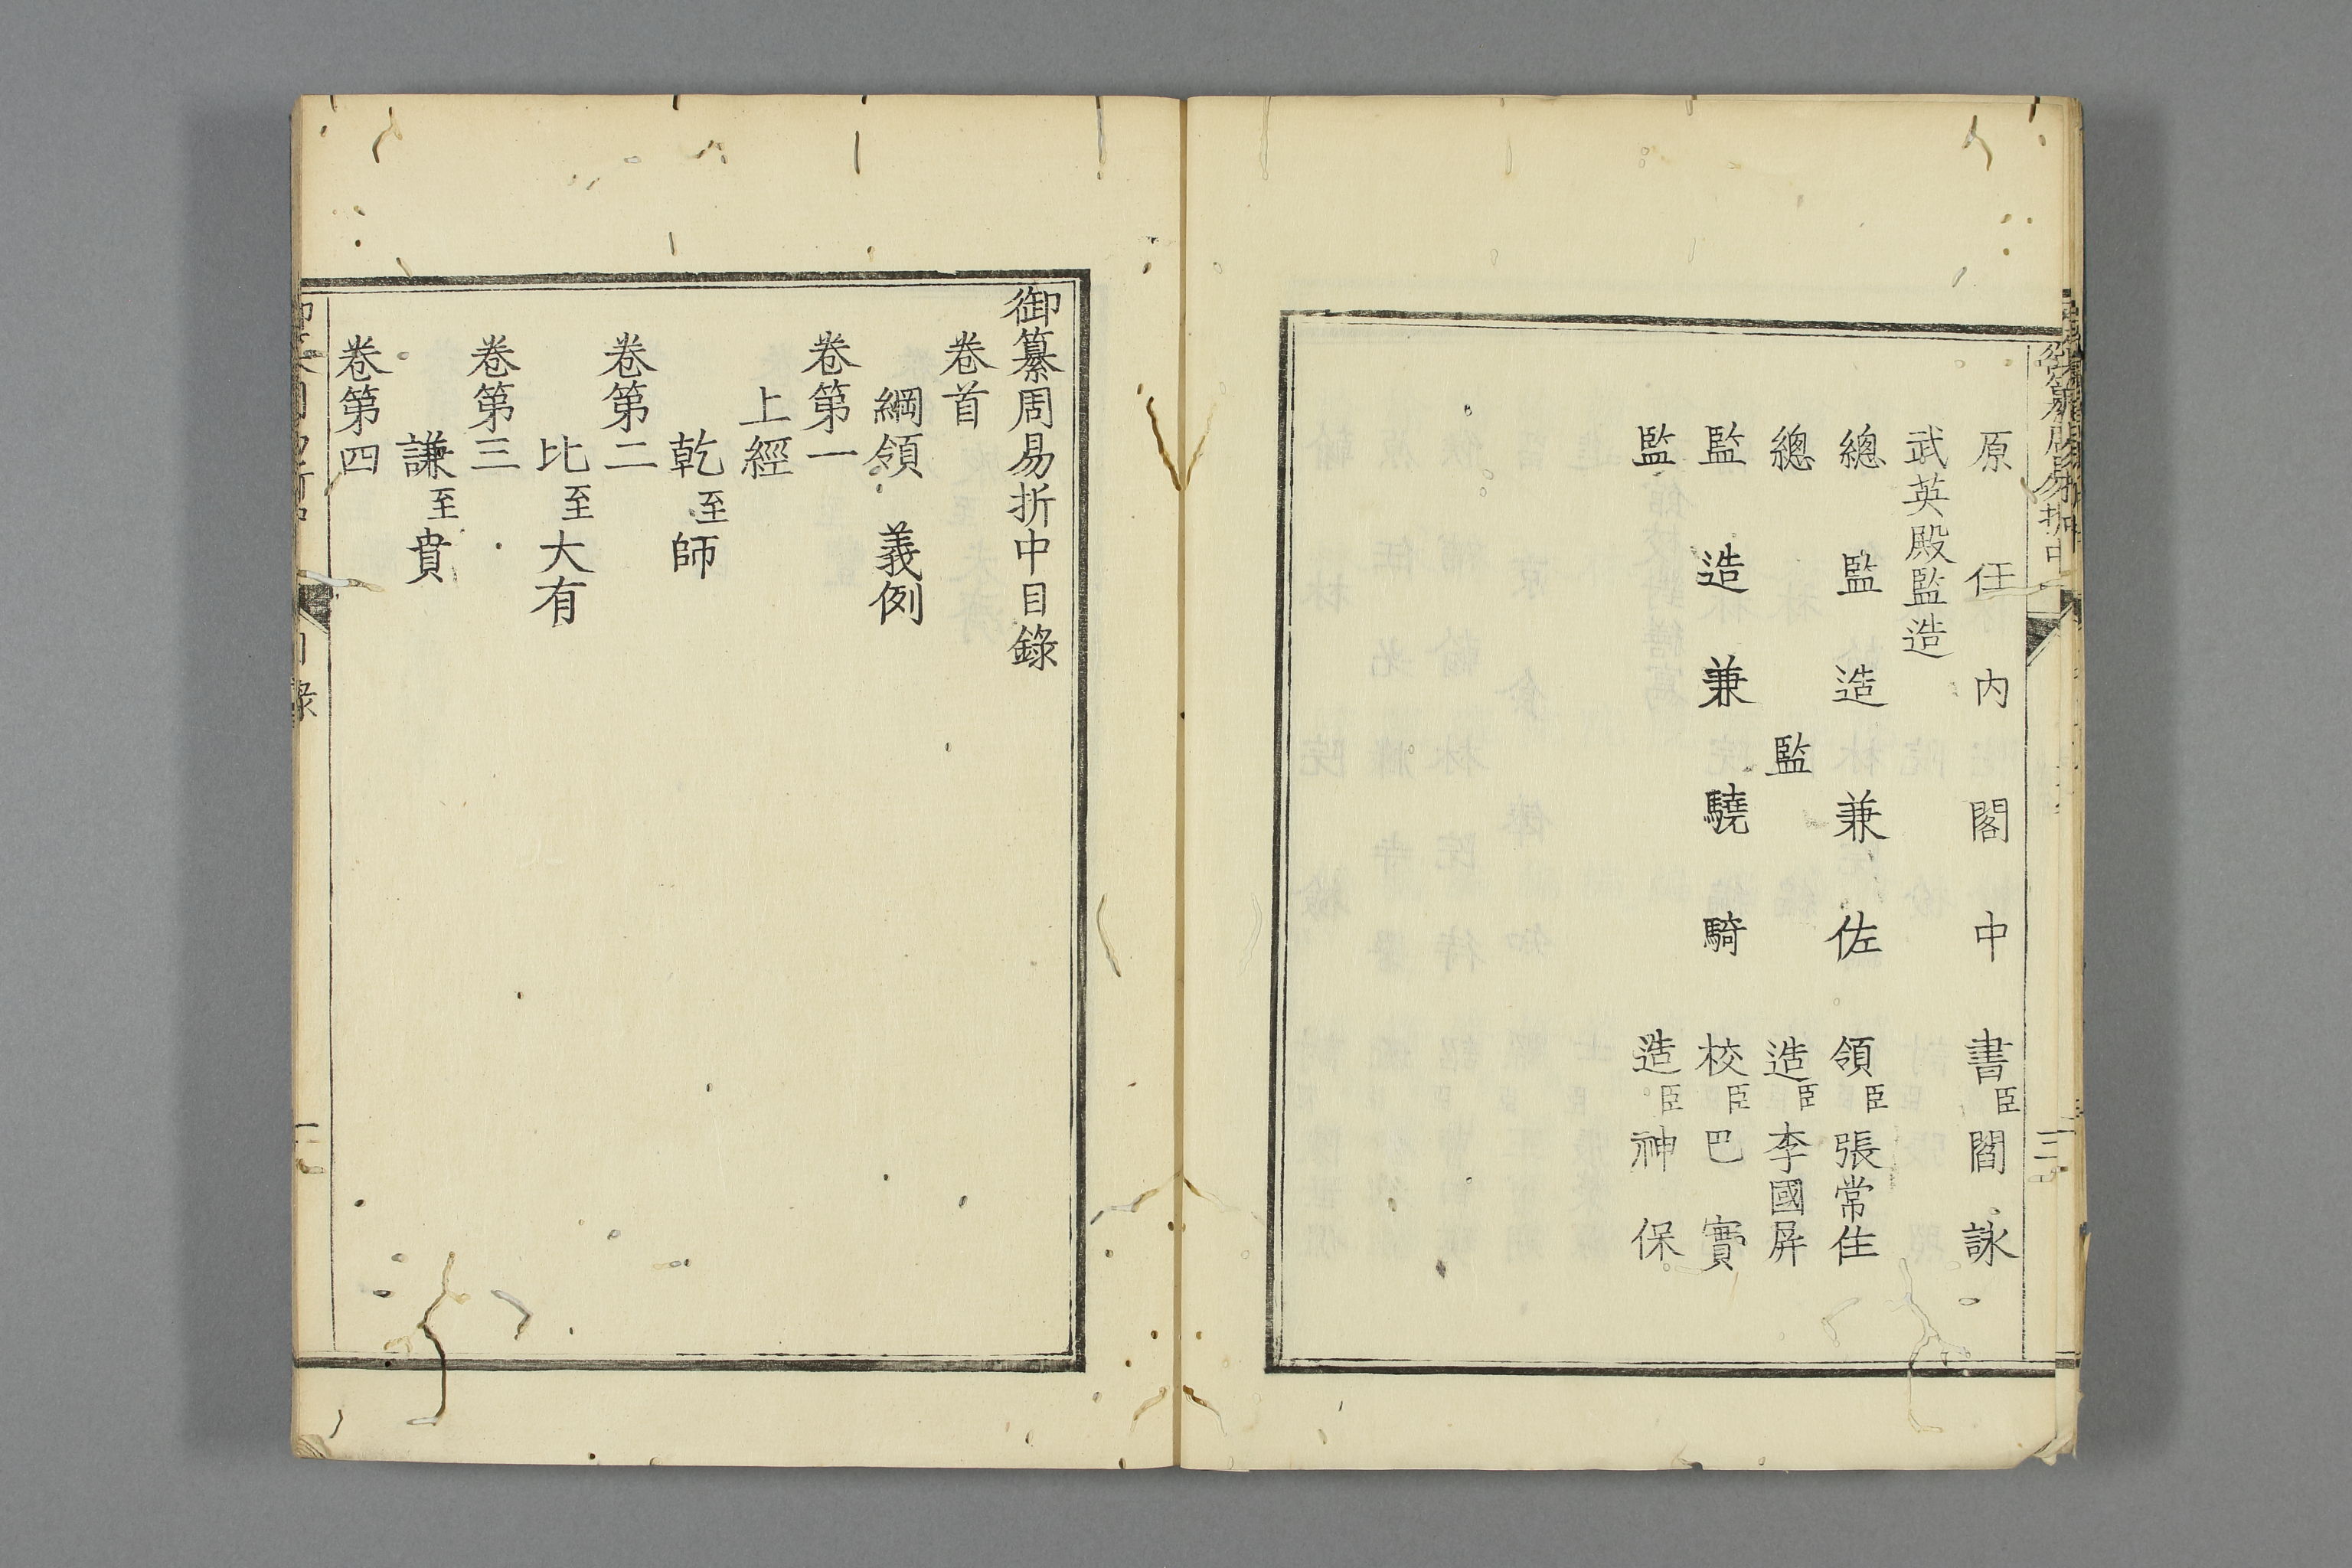 原任內閣中書臣閻詠
武英殿監造
總監造兼佐領臣張常住
總監造臣李國屏
監造兼驍騎校臣巴實
監造臣神保
御纂周易折中目錄
卷首
綱領 義例
卷第一
上經
乾至師
卷第二
比至大有
卷第三
謙至賁
卷第四